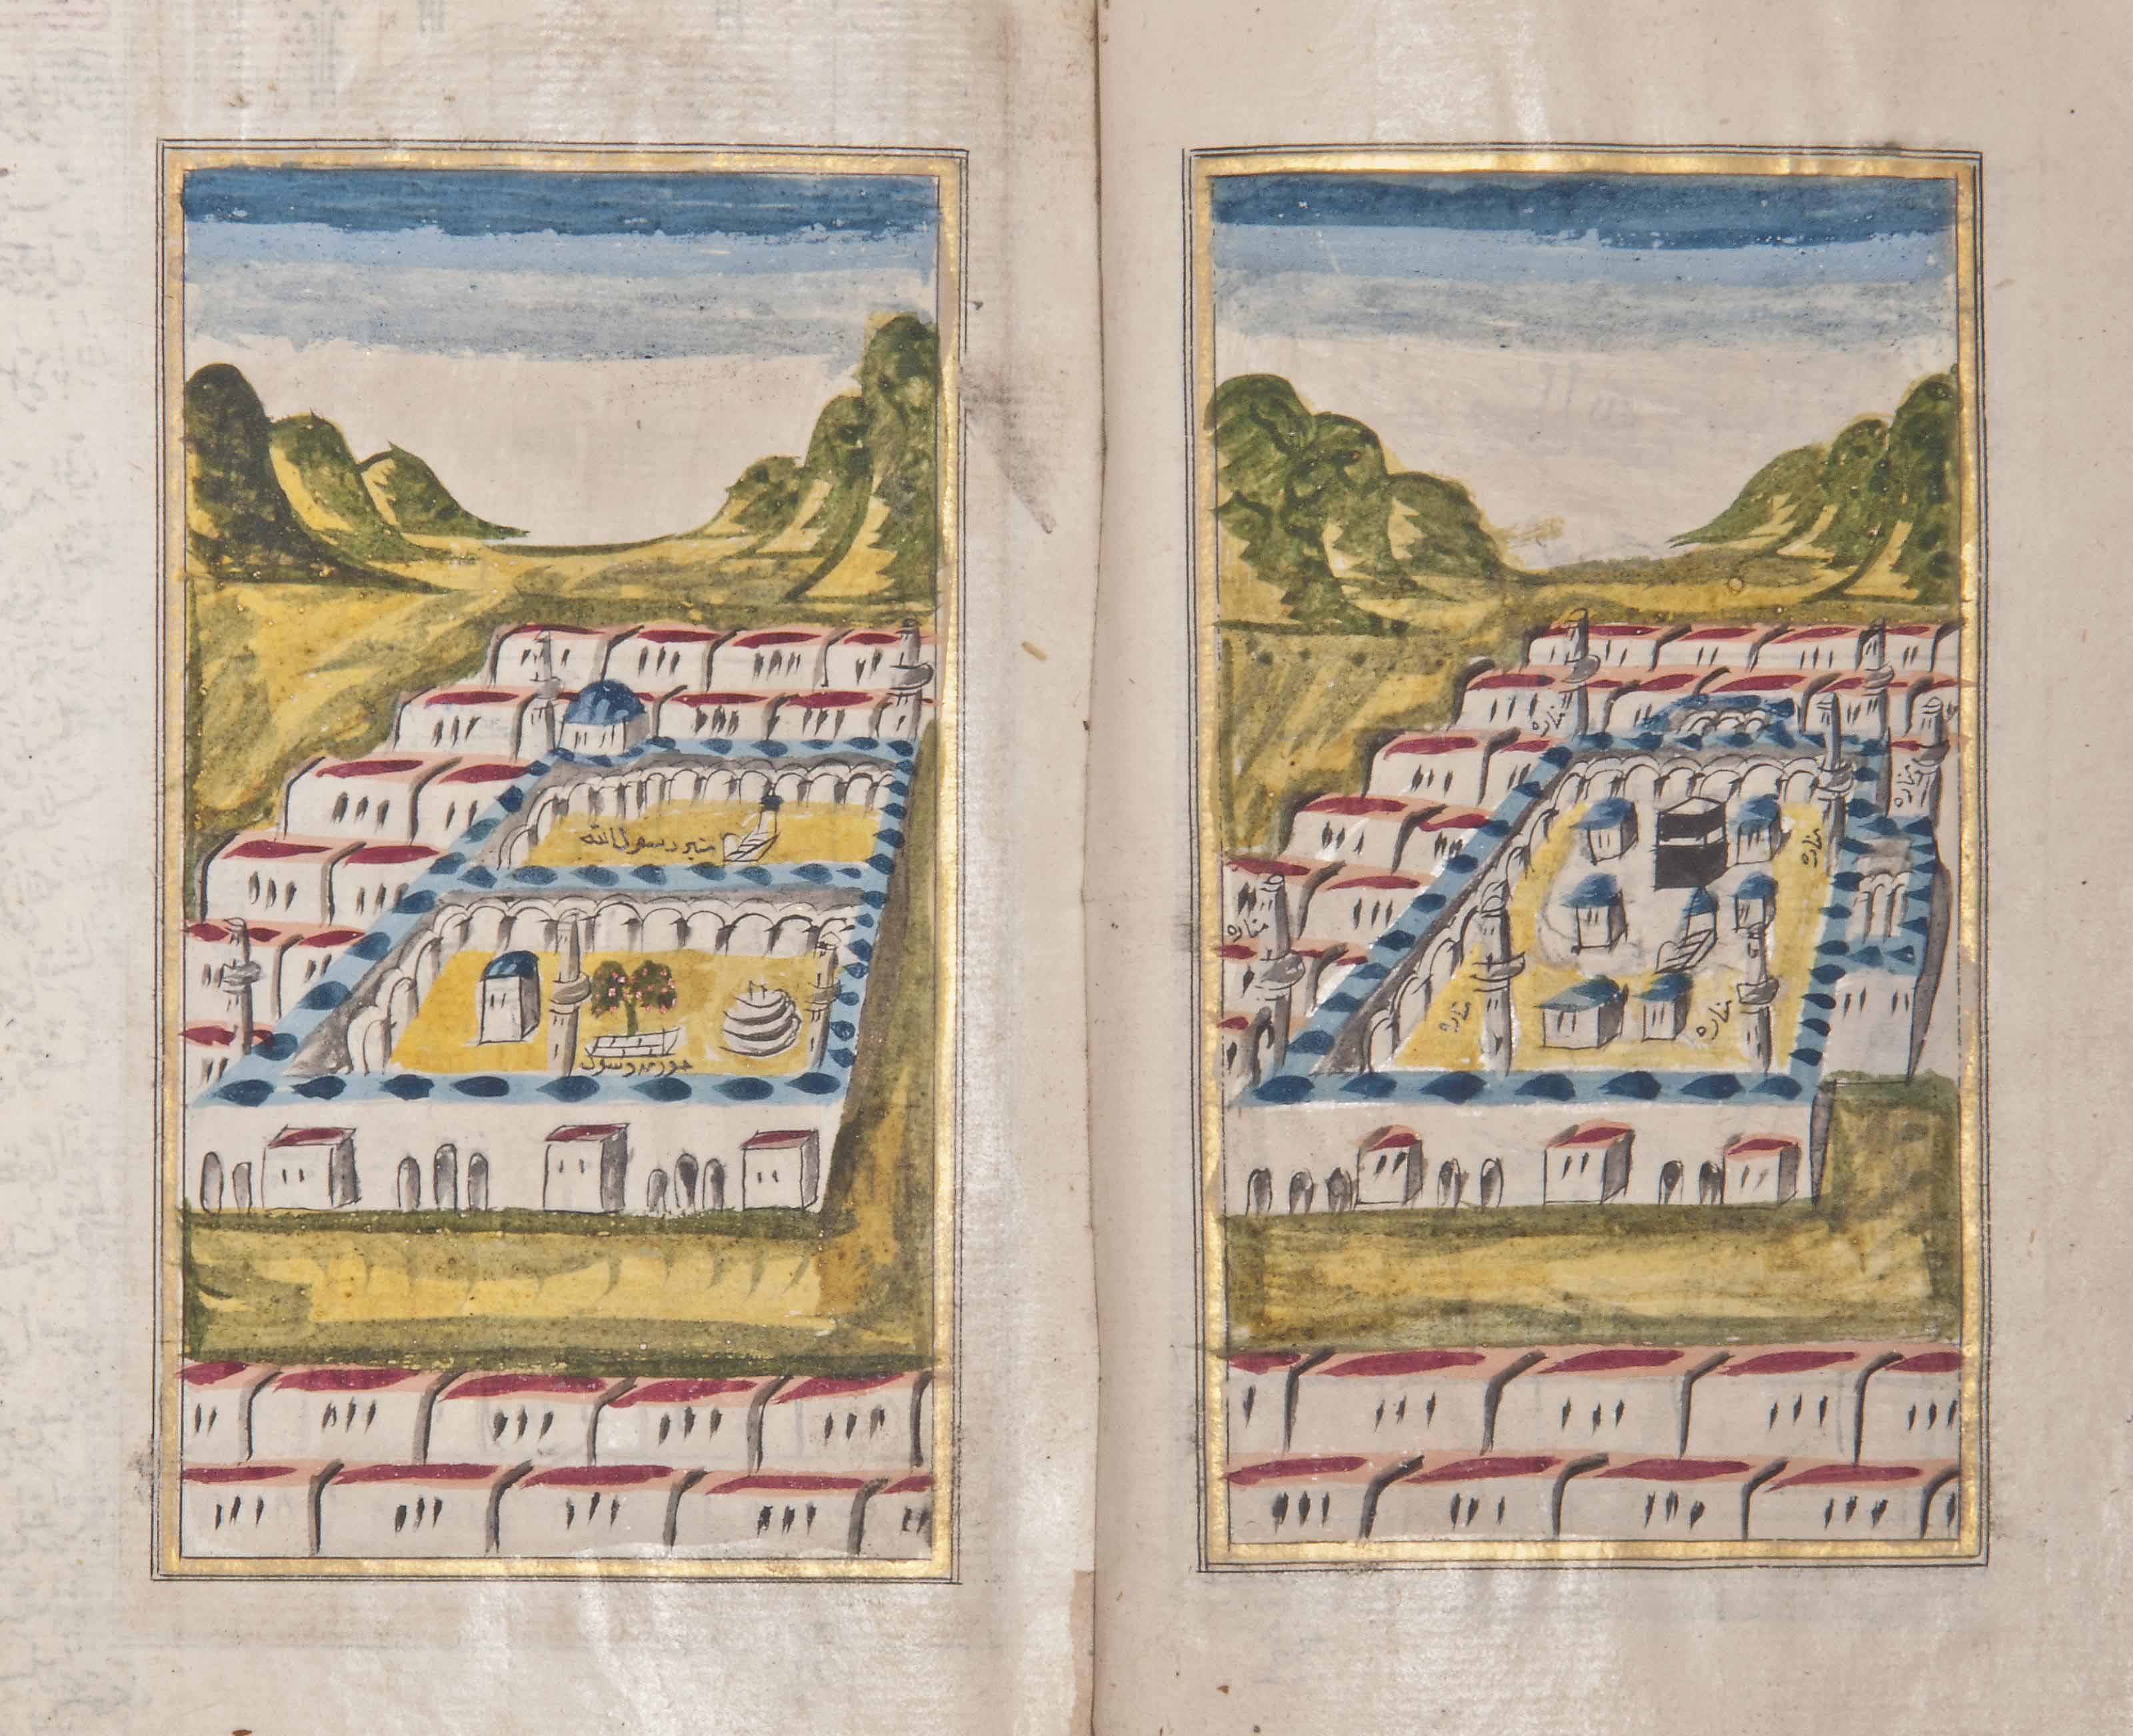 مناره
مناره
مناره
مناره
مناره
مناره
منبر رسول الله